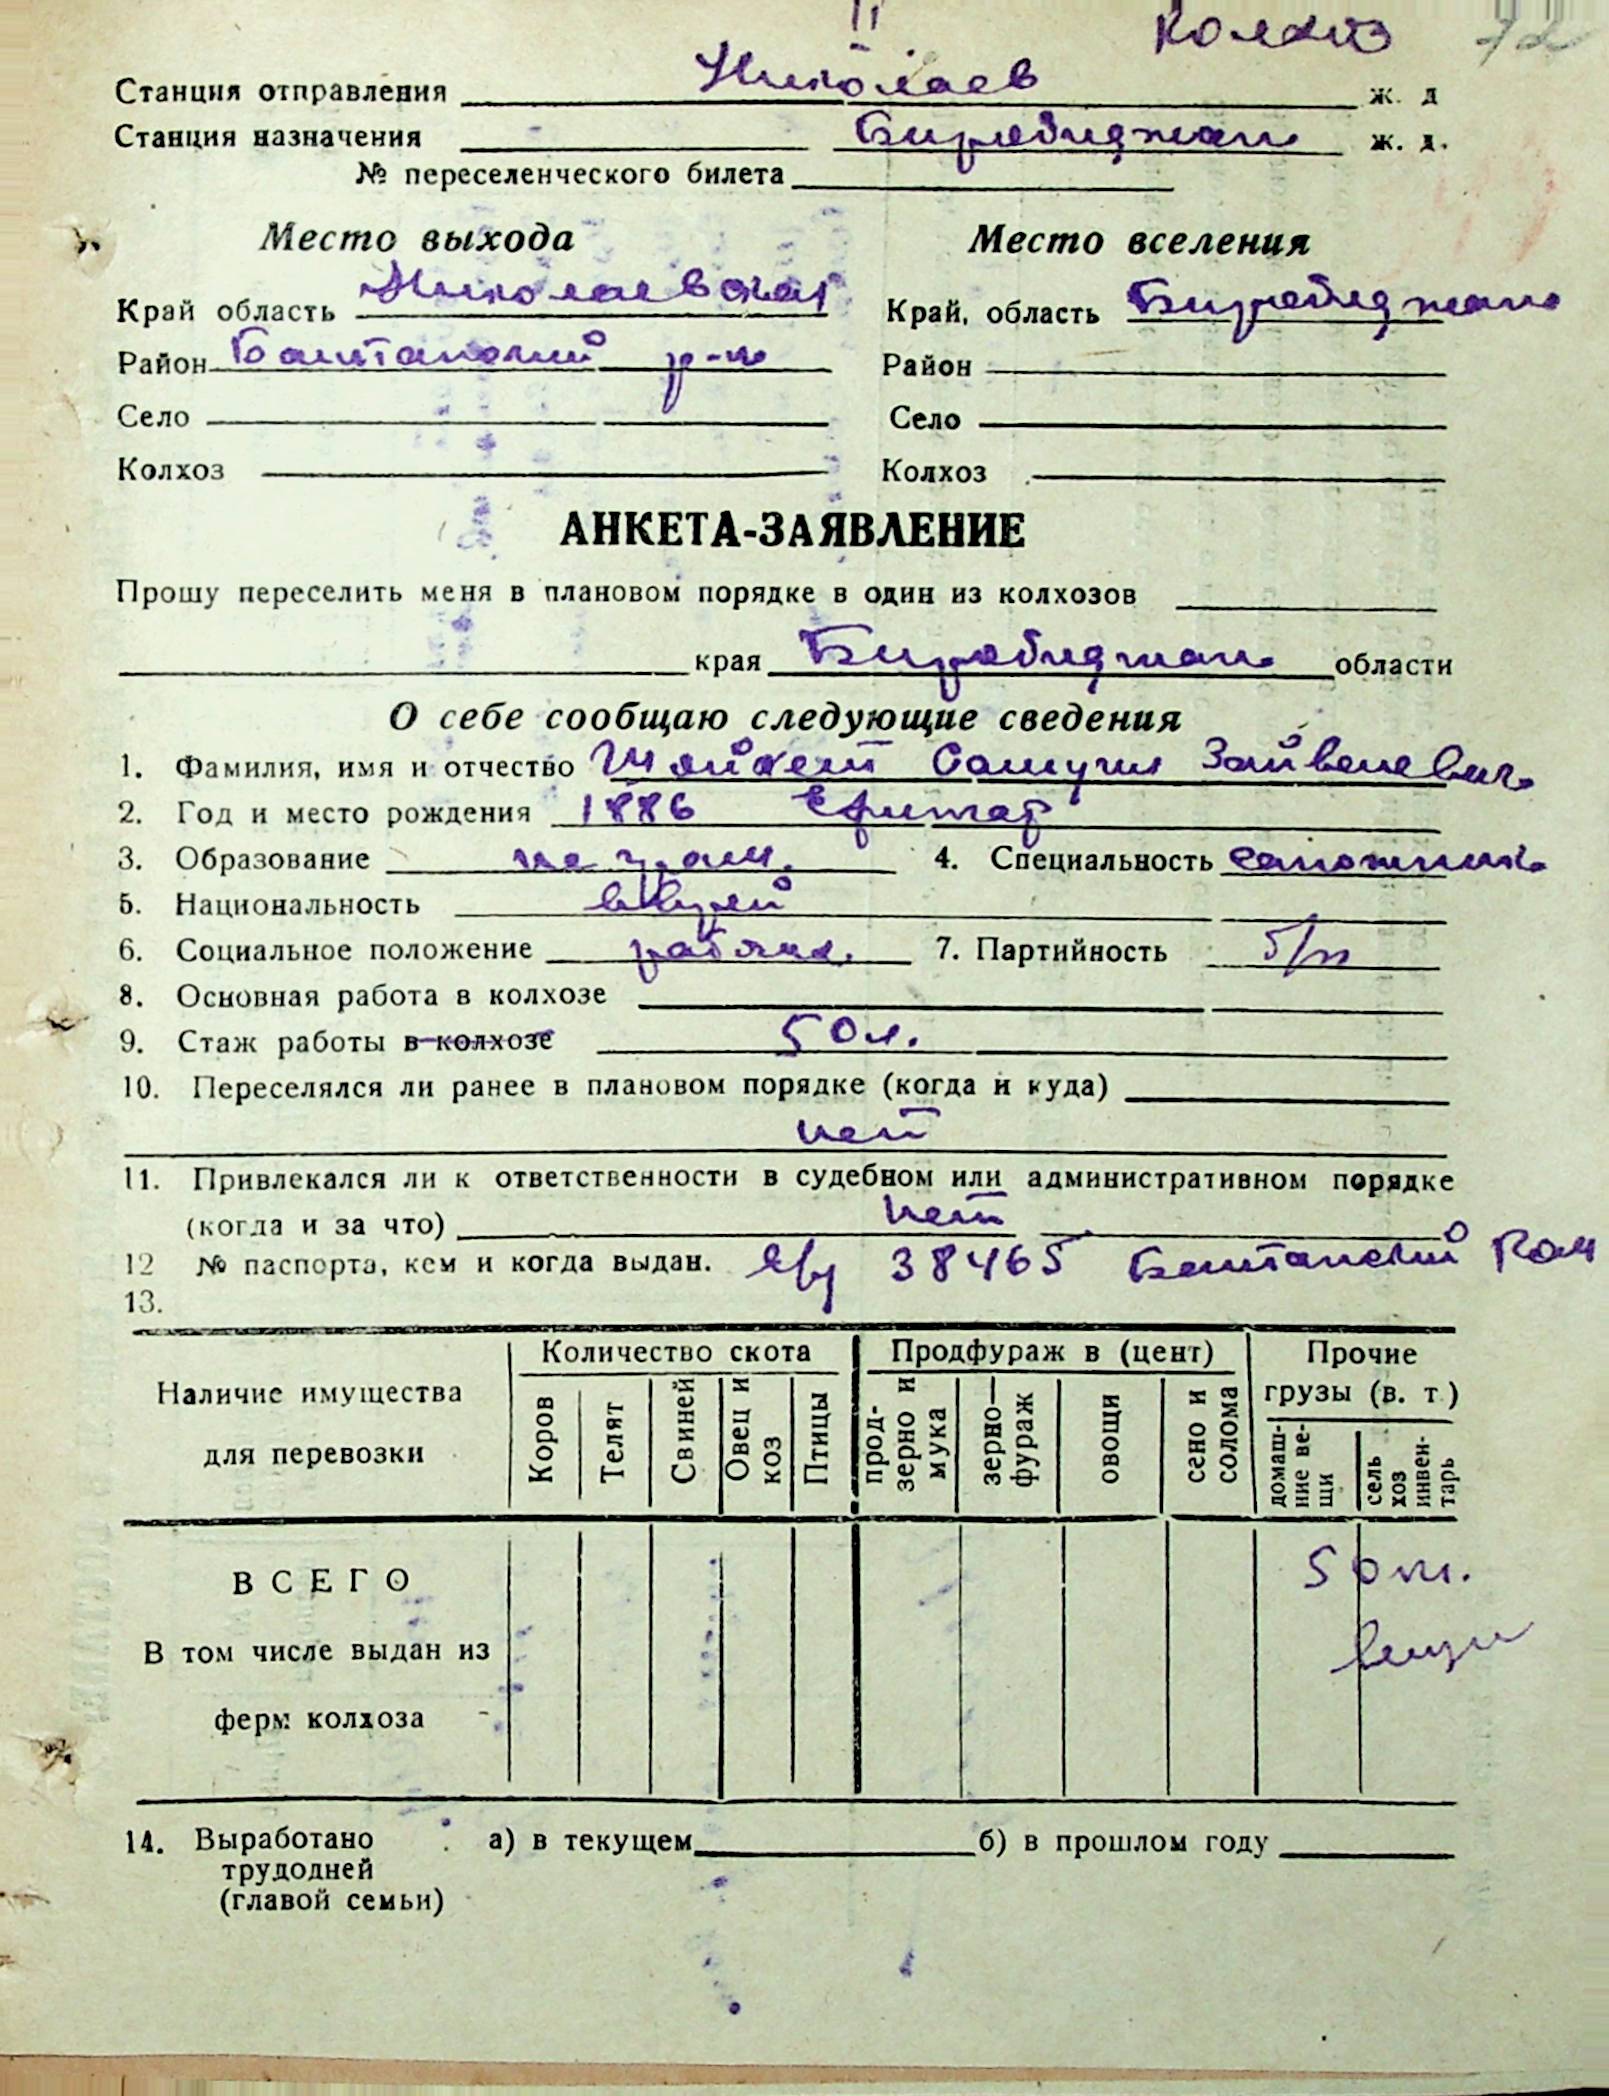 колхоз 72
Станция отправления Николаев ж. д
Станция назначения Биробиджан ж. д.
№ переселенческого билета
Место выхода Место вселения
Край область Николаевская Край, область Биробиджан
Район Баштанский р-н Район
Село Село
Колхоз Колхоз
АНКЕТА-ЗАЯВЛЕНИЕ
Прошу переселить меня в плановом порядке в один из колхозов
края Биробиджан области
О себе сообщаю следующие сведения
1. Фамилия, имя и отчество Шайкет Самуил
2. Год и место рождения 1886
3. Образование не грам. 4. Специальность сапожник
5. Национальность еврей
6. Социальное положение 7. Партийность б/п
8. Основная работа в колхозе
9. Стаж работы в колхозе 50 л.
10. Переселялся ли ранее в плановом порядке (когда и куда)
нет
11. Привлекался ли к ответственности в судебном или административном порядке
(когда и за что) нет
12 № паспорта, кем и когда выдан. 38465 Баштанский
13.
Количество скота Продфураж в (цент) Прочие
Наличие имущества грузы (в. т.)
для перевозки Коров Телят Свиней Овец и коз Птицы прод-зерно и мука зерно—фураж овощи сено и солома домаш-ние ве-щи сель хоз инвен-тарь
ВСЕГО 50
В том числе выдан из вещи
ферм колхоза
14. Выработано а) в текущем б) в прошлом году
трудодней
(главой семьи)